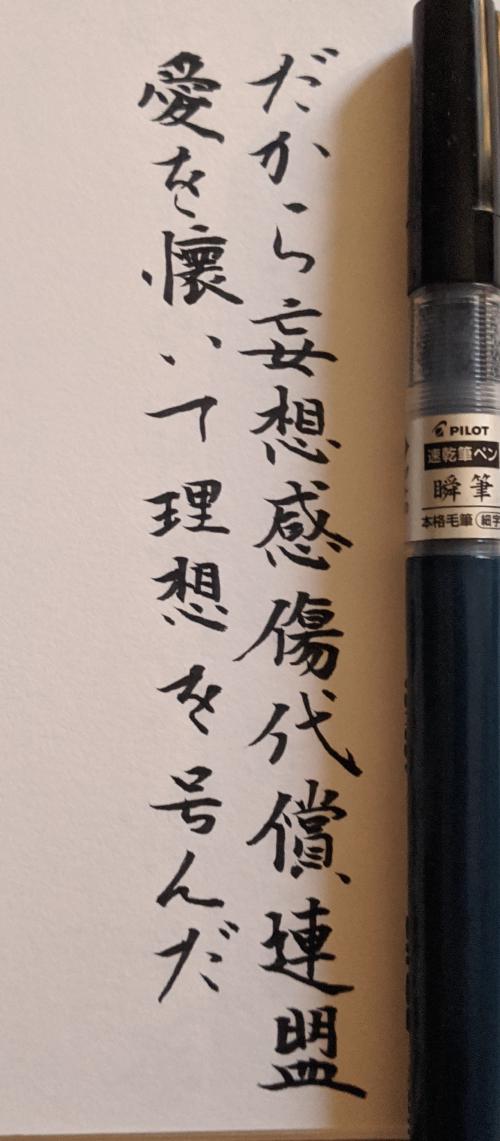 だから妄想感傷代償連盟
愛を懐いて理想を号んだ
PILOT
速乾筆ペン
瞬筆
本格毛筆 細字